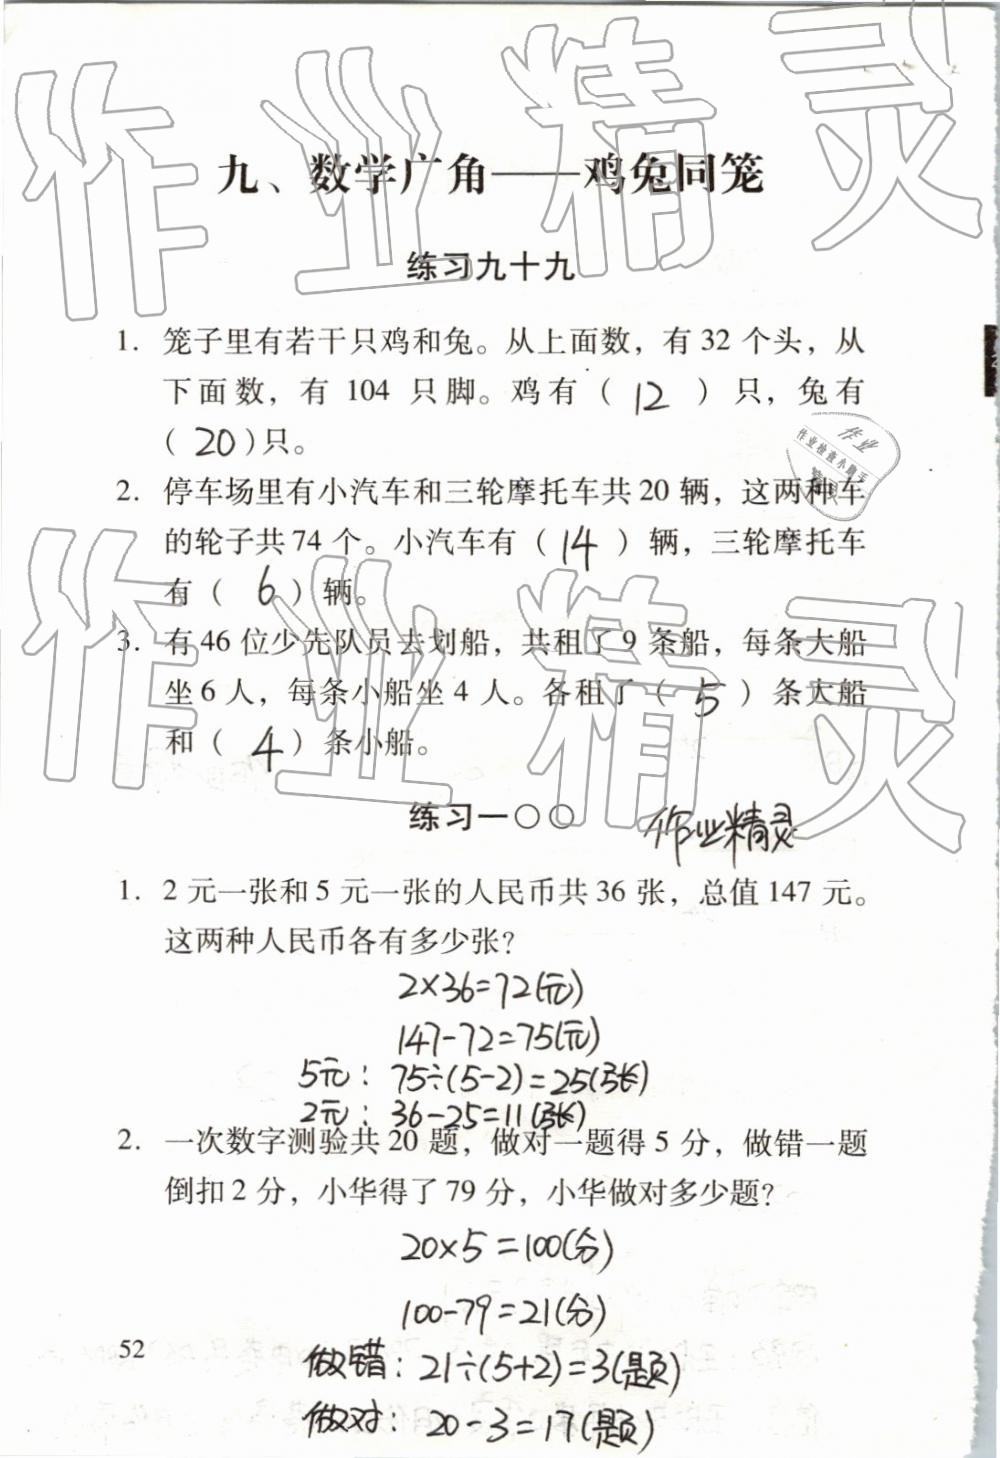 九、数学广角——鸡兔同笼
练习九十九
1. 笼子里有若干只鸡和兔。从上面数，有 32 个头，从
下面数，有 104 只脚。鸡有（ 12 ）只，兔有
（ 20 ）只。
2. 停车场里有小汽车和三轮摩托车共 20 辆，这两种车
的轮子共 74 个。小汽车有（ 14 ）辆，三轮摩托车
有（ 6 ）辆。
3. 有 46 位少先队员去划船，共租了 9 条船，每条大船
坐 6 人，每条小船坐 4 人。各租了（ 5 ）条大船
和（ 4 ）条小船。
练习一〇〇
作业精灵
1. 2 元一张和 5 元一张的人民币共 36 张，总值 147 元。
这两种人民币各有多少张？
2×36=72(元)
147-72=75(元)
5元：75÷(5-2)=25(张)
2元：36-25=11(张)
2. 一次数字测验共 20 题，做对一题得 5 分，做错一题
倒扣 2 分，小华得了 79 分，小华做对多少题？
20×5=100(分)
100-79=21(分)
做错：21÷(5+2)=3(题)
做对：20-3=17(题)
52
作业精灵
作业精灵
作业
作业检查小助手